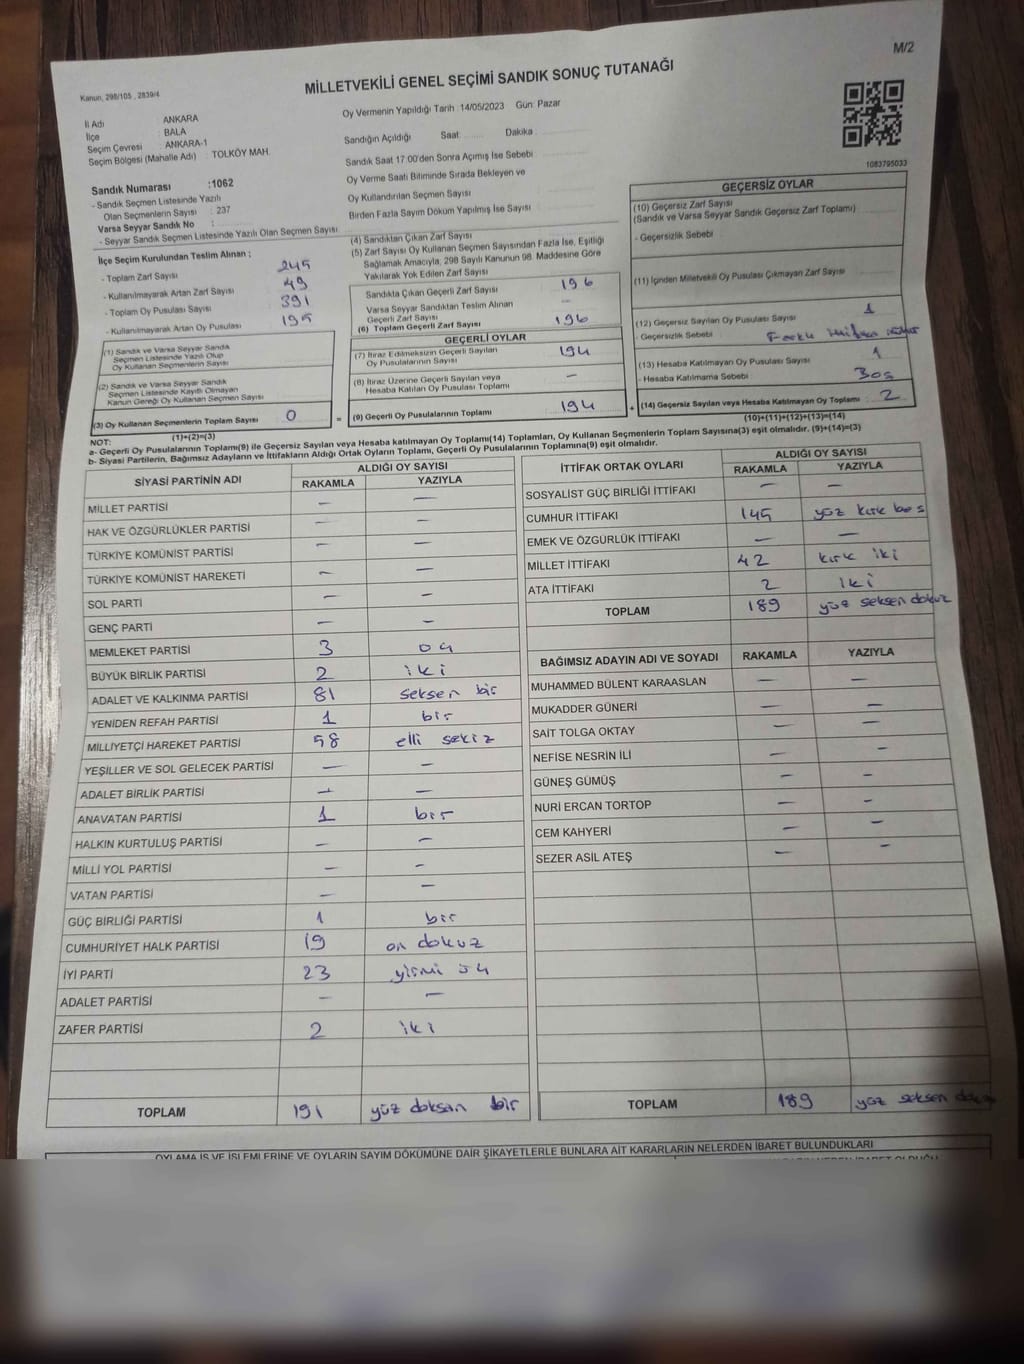 M/2
MİLLETVEKİLİ GENEL SEÇİMİ SANDIK SONUÇ TUTANAĞI
Kanun, 298/105 , 2839/4
İl Adı : ANKARA
İlçe : BALA
Seçim Çevresi : ANKARA-1
Seçim Bölgesi (Mahalle Adı) : TOLKÖY MAH.
Sandık Numarası :1062
- Sandık Seçmen Listesinde Yazılı
Olan Seçmenlerin Sayısı : 237
Varsa Seyyar Sandık No :
- Seyyar Sandık Seçmen Listesinde Yazılı Olan Seçmen Sayısı
Oy Vermenin Yapıldığı Tarih :14/05/2023 Gün: Pazar
Sandığın Açıldığı Saat Dakika
Sandık Saat 17:00'den Sonra Açımış İse Sebebi
Oy Verme Saati Bitiminde Sırada Bekleyen ve
Oy Kullandırılan Seçmen Sayısı
Birden Fazla Sayım Döküm Yapılmış İse Sayısı
1083795033
İlçe Seçim Kurulundan Teslim Alınan ;
- Toplam Zarf Sayısı 245
- Kullanılmayarak Artan Zarf Sayısı 49
- Toplam Oy Pusulası Sayısı 391
- Kullanılmayarak Artan Oy Pusulası 195
(1) Sandık ve Varsa Seyyar Sandık
Seçmen Listesinde Yazılı Olup
Oy Kullanan Seçmenlerin Sayısı
(2) Sandık ve Varsa Seyyar Sandık
Seçmen Listesinde Kayıtlı Olmayan
Kanun Gereği Oy Kullanan Seçmen Sayısı
(3) Oy Kullanan Seçmenlerin Toplam Sayısı 0
(1)+(2)=(3)
(4) Sandıktan Çıkan Zarf Sayısı
(5) Zarf Sayısı Oy Kullanan Seçmen Sayısından Fazla İse, Eşitliği
Sağlamak Amacıyla, 298 Sayılı Kanunun 98. Maddesine Göre
Yakılarak Yok Edilen Zarf Sayısı
Sandıkta Çıkan Geçerli Zarf Sayısı 196
Varsa Seyyar Sandıktan Teslim Alınan
Geçerli Zarf Sayısı —
(6) Toplam Geçerli Zarf Sayısı 196
GEÇERLİ OYLAR
(7) İtiraz Edilmeksizin Geçerli Sayılan
Oy Pusulalarının Sayısı 194
(8) İtiraz Üzerine Geçerli Sayılan veya
Hesaba Katılan Oy Pusulası Toplamı —
= (9) Geçerli Oy Pusulalarının Toplamı 194
GEÇERSİZ OYLAR
(10) Geçersiz Zarf Sayısı
(Sandık ve Varsa Seyyar Sandık Geçersiz Zarf Toplamı)
- Geçersizlik Sebebi
(11) İçinden Milletvekili Oy Pusulası Çıkmayan Zarf Sayısı
(12) Geçersiz Sayılan Oy Pusulası Sayısı 1
- Geçersizlik Sebebi
(13) Hesaba Katılmayan Oy Pusulası Sayısı 1
- Hesaba Katılmama Sebebi Bos
+ (14) Geçersiz Sayılan veya Hesaba Katılmayan Oy Toplamı 2
(10)+(11)+(12)+(13)=(14)
NOT:
a- Geçerli Oy Pusulalarının Toplamı(9) ile Geçersiz Sayılan veya Hesaba katılmayan Oy Toplamı(14) Toplamları, Oy Kullanan Seçmenlerin Toplam Sayısına(3) eşit olmalıdır. (9)+(14)=(3)
b- Siyasi Partilerin, Bağımsız Adayların ve İttifakların Aldığı Ortak Oyların Toplamı, Geçerli Oy Pusulalarının Toplamına(9) eşit olmalıdır.
SİYASİ PARTİNİN ADI ALDIĞI OY SAYISI
RAKAMLA YAZIYLA
MİLLET PARTİSİ — —
HAK VE ÖZGÜRLÜKLER PARTİSİ — —
TÜRKİYE KOMÜNİST PARTİSİ — —
TÜRKİYE KOMÜNİST HAREKETİ — —
SOL PARTİ — —
GENÇ PARTİ — —
MEMLEKET PARTİSİ 3 üç
BÜYÜK BİRLİK PARTİSİ 2 iki
ADALET VE KALKINMA PARTİSİ 81 seksen bir
YENİDEN REFAH PARTİSİ 1 bir
MİLLİYETÇİ HAREKET PARTİSİ 58 elli sekiz
YEŞİLLER VE SOL GELECEK PARTİSİ — —
ADALET BİRLİK PARTİSİ — —
ANAVATAN PARTİSİ 1 bir
HALKIN KURTULUŞ PARTİSİ — —
MİLLİ YOL PARTİSİ — —
VATAN PARTİSİ — —
GÜÇ BİRLİĞİ PARTİSİ 1 bir
CUMHURİYET HALK PARTİSİ 19 on dokuz
İYİ PARTİ 23 yirmi üç
ADALET PARTİSİ — —
ZAFER PARTİSİ 2 iki
TOPLAM 191 yüz doksan bir
İTTİFAK ORTAK OYLARI ALDIĞI OY SAYISI
RAKAMLA YAZIYLA
SOSYALİST GÜÇ BİRLİĞİ İTTİFAKI — —
CUMHUR İTTİFAKI 145 yüz kırk bes
EMEK VE ÖZGÜRLÜK İTTİFAKI — —
MİLLET İTTİFAKI 42 kırk iki
ATA İTTİFAKI 2 iki
TOPLAM 189 yüz seksen dokuz
BAĞIMSIZ ADAYIN ADI VE SOYADI RAKAMLA YAZIYLA
MUHAMMED BÜLENT KARAASLAN — —
MUKADDER GÜNERİ — —
SAİT TOLGA OKTAY — —
NEFİSE NESRİN İLİ — —
GÜNEŞ GÜMÜŞ — —
NURİ ERCAN TORTOP — —
CEM KAHYERİ — —
SEZER ASİL ATEŞ — —
TOPLAM 189 yüz seksen dokuz
OYLAMA İŞ VE İŞLEMLERİNE VE OYLARIN SAYIM DÖKÜMÜNE DAİR ŞİKAYETLERLE BUNLARA AİT KARARLARIN NELERDEN İBARET BULUNDUKLARI